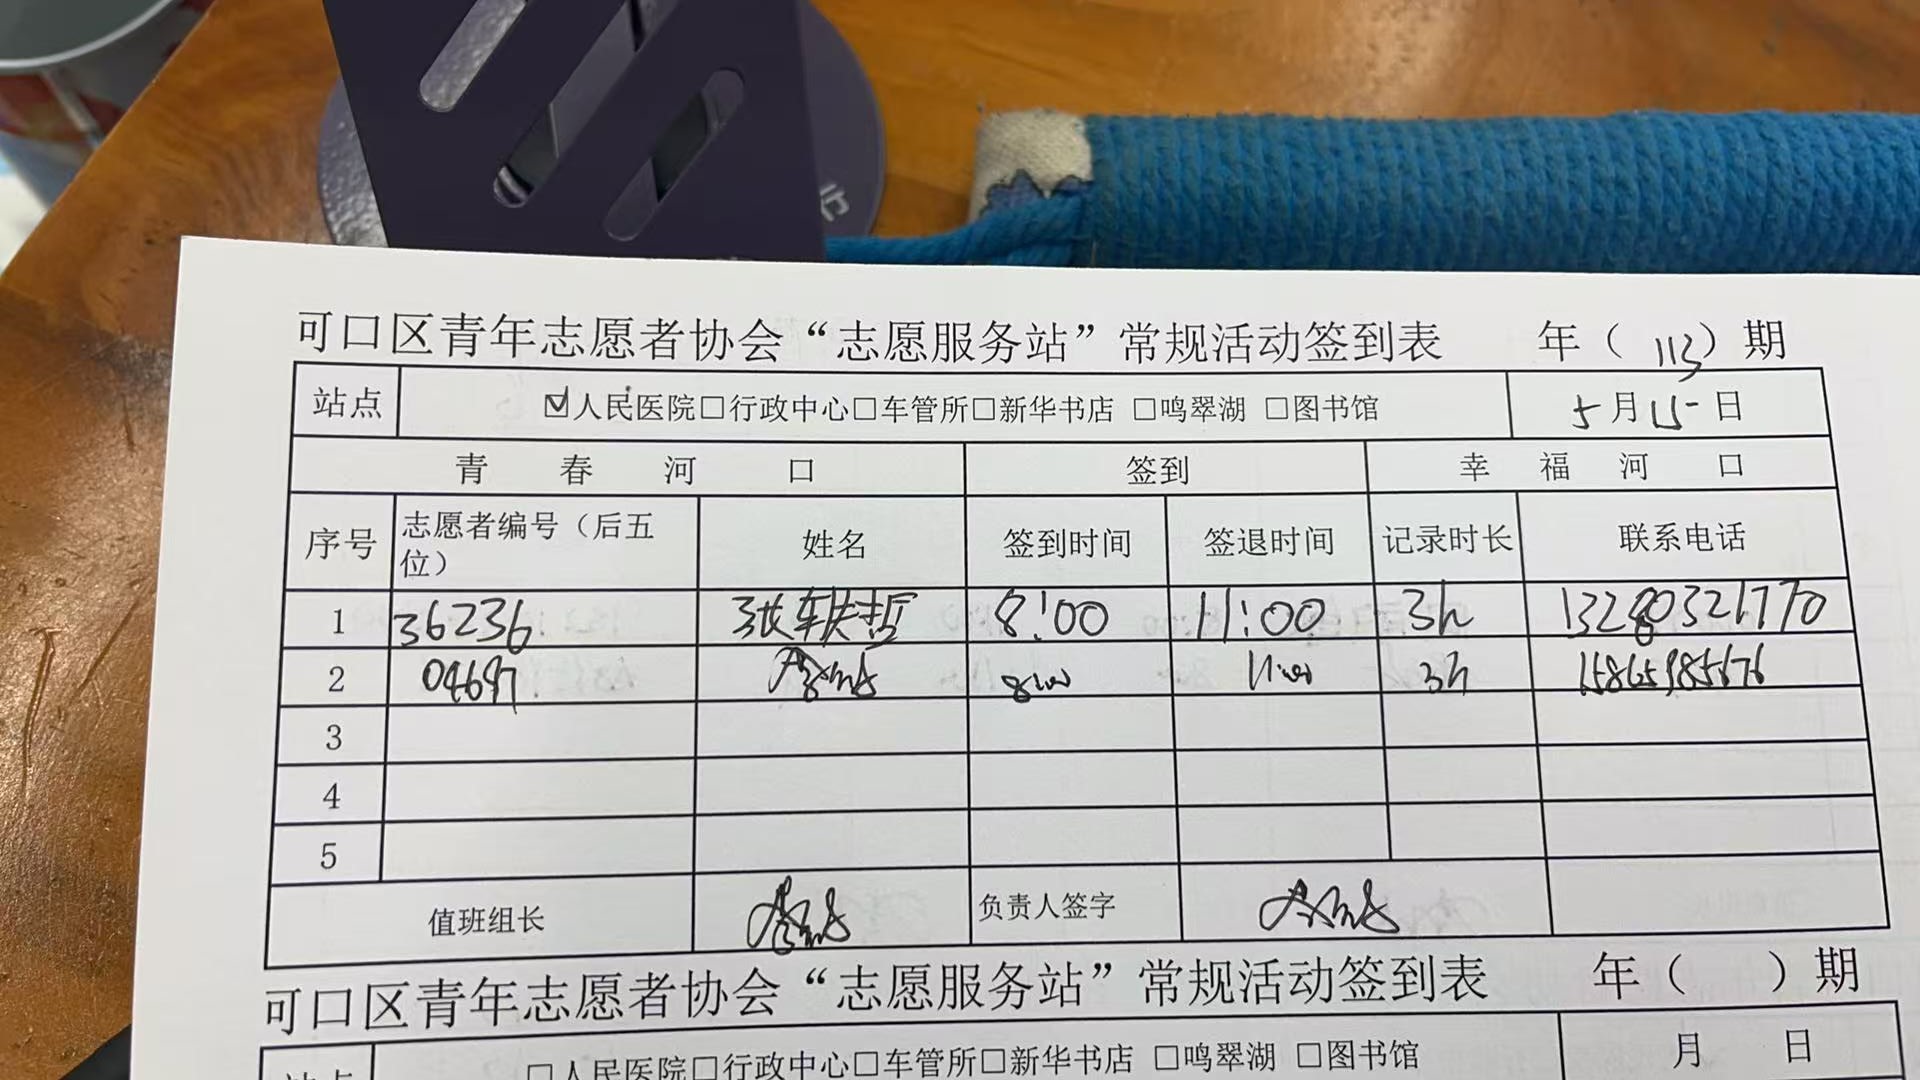 可口区青年志愿者协会“志愿服务站”常规活动签到表 年（113）期
站点 ☑人民医院□行政中心□车管所□新华书店 □鸣翠湖 □图书馆 5月15日
青 春 河 口 签到 幸 福 河 口
序号 志愿者编号（后五位） 姓名 签到时间 签退时间 记录时长 联系电话
1 36236 张轶哲 8:00 11:00 3h 13280321770
2 04697 8:00 11:00 3h 15865985676
3
4
5
值班组长 负责人签字
可口区青年志愿者协会“志愿服务站”常规活动签到表 年（ ）期
站点 □人民医院□行政中心□车管所□新华书店 □鸣翠湖 □图书馆 月 日